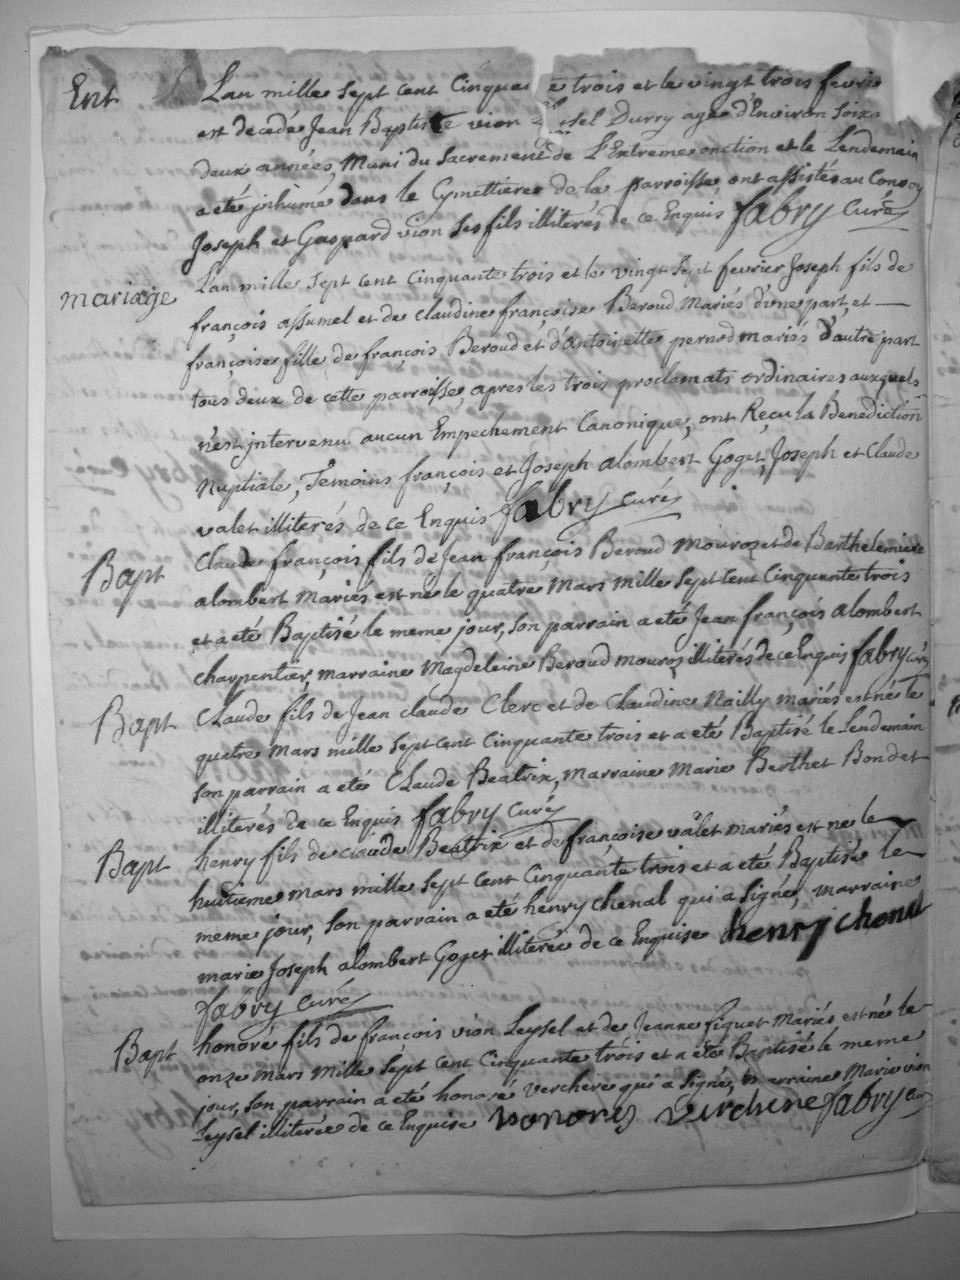 Ent
L'an mille sept cent cinquante trois et le vingt trois fevrier
est decedé Jean Baptiste vion Leysel Durry agé d'Environ soix
deux années, Muni du Sacrement de L'Extremeonction et le Lendemain
a eté jnhumé dans le Cymettiere de la parroisse, ont assistés au Convoy
Joseph et Gaspard vion ses fils illiterés de ce Enquis fabry Curé
Mariage
L'an mille sept cent cinquante trois et le vingt sept fevrier Joseph fils de
françois assumel et de claudine françoise Beroud Mariés d'une part, et
françoise fille de françois Beroud et d'antoinette pernod mariés d'autre part
tous deux de cette parroisse apres les trois proclamats ordinaires auxquels
n'est jntervenu aucun Empechement Canonique, ont Reçu la Benediction
Nuptiale, Temoins françois et Joseph alombert Goget, Joseph et Claude
valet illiterés de ce Enquis fabry curé
Bapt
Claude françois fils de Jean françois Beroud Mouroz et de Barthelemiere
alombert Mariés est né le quatre Mars mille sept cent cinquante trois
et a eté Baptisé le meme jour, son parrain a eté Jean françois alombert
charpentier, marraine Magdeleine Beroud mouroz illiterés de ce Enquis fabry curé
Bapt
Claude fils de Jean claude Clerc et de Claudine Nailly mariés est né le
quatre Mars mille sept cent cinquante trois et a eté Baptisé le Lendemain
son parrain a eté Claude Beatrix, marraine Marie Berthet Bondet
illiterés de ce Enquis fabry curé
Bapt
henry fils de claude Beatrix et de françoise valet mariés est né le
huitieme mars mille sept cent cinquante trois et a eté Baptisé le
meme jour, son parrain a eté henry chenal qui a signé, marraine
marie Joseph alombert Goget illiterée de ce Enquise henry chenal
fabry curé
Bapt
honoré fils de francois vion Leysel et de Jeanne fiquet Mariés est né le
onze Mars mille sept cent cinquante trois et a eté Baptisé le meme
jour, son parrain a eté honoré verchere qui a signé, marraine Marie vion
Leysel illiterée de ce Enquise honores verchere fabry cu